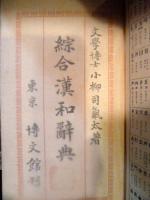 文學博士 小柳司氣太著
綜合漢和辭典
東京 博文館刊